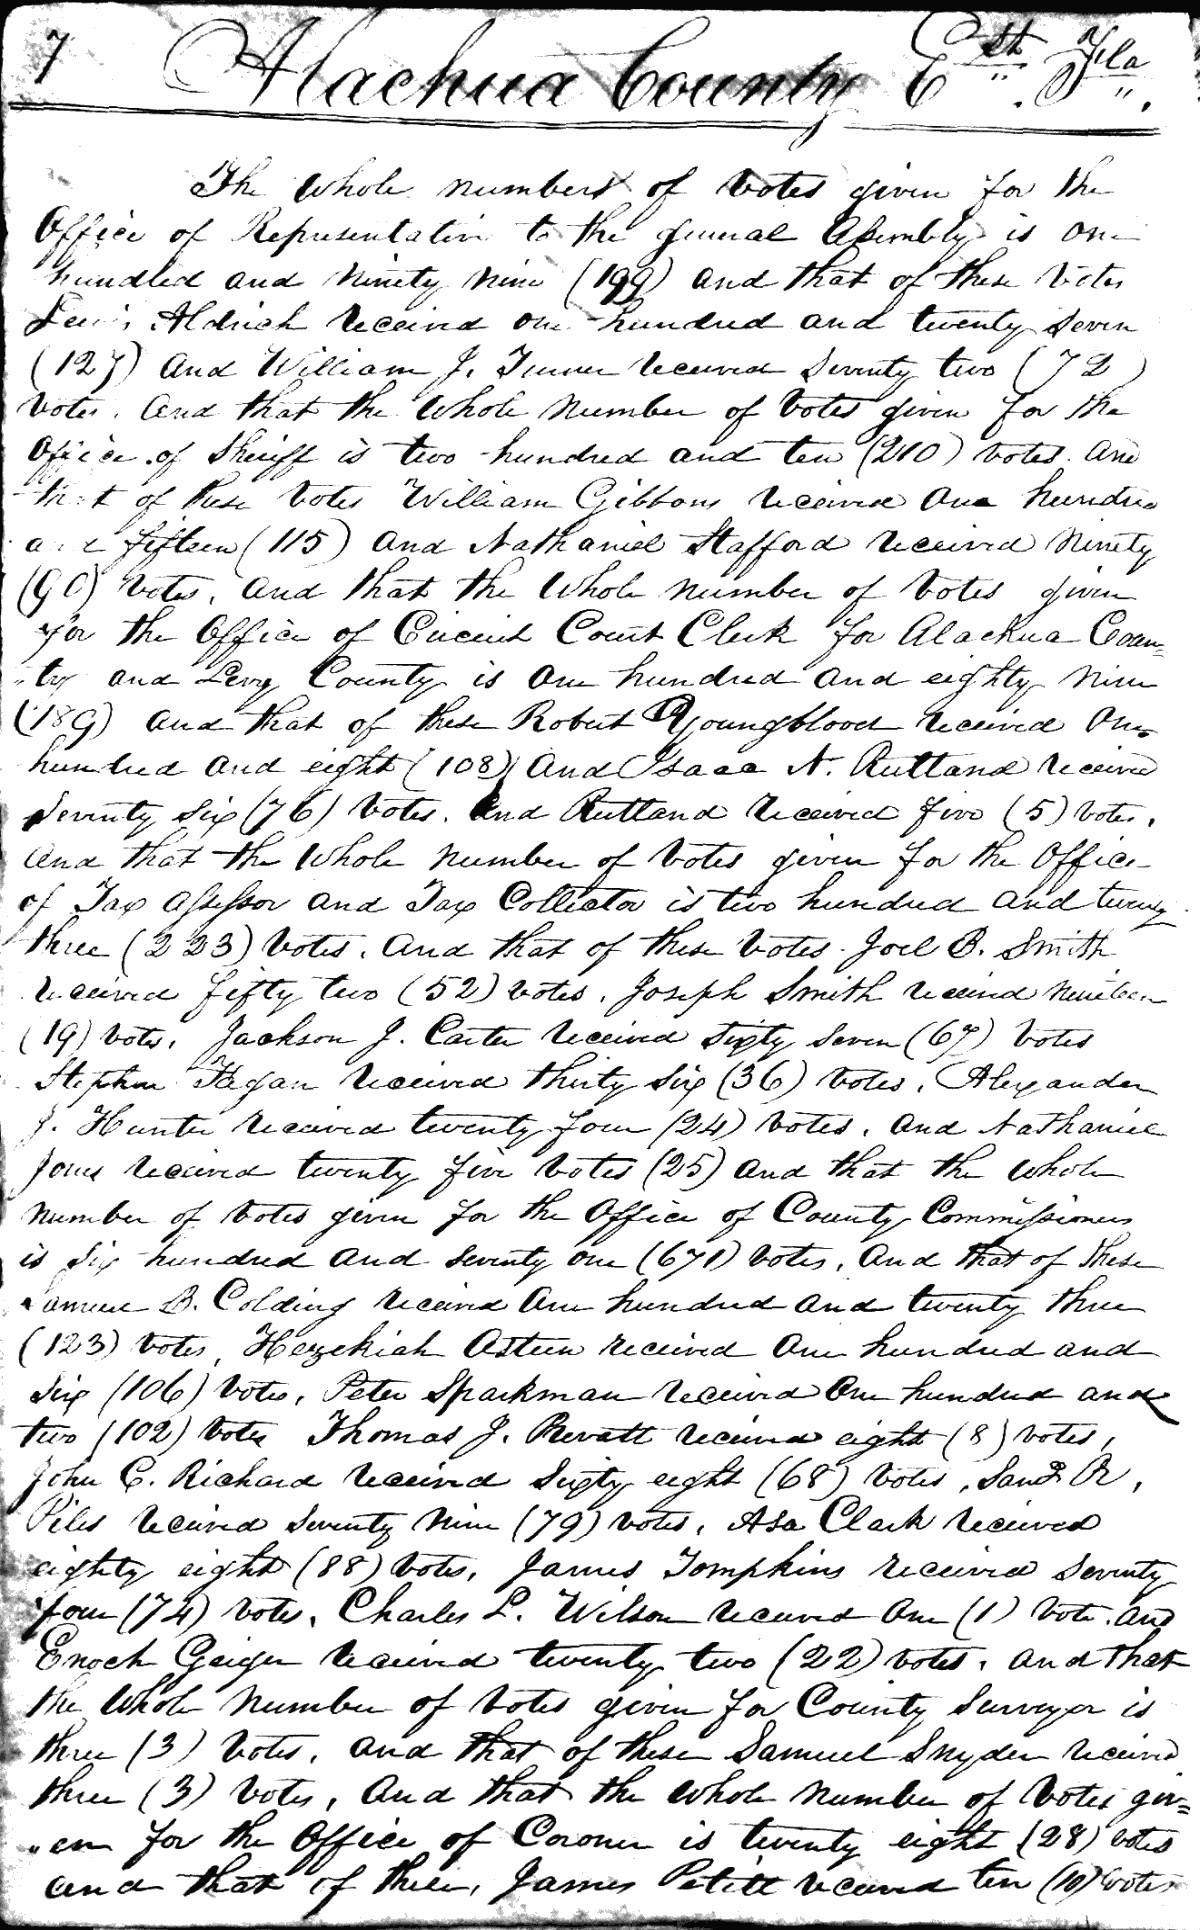 7 Alachua County Est. Fla.
The whole numbers of votes given for the
Office of Representative to the general Assembly is one
hundled and Ninety Nine (199) and that of these Votes
Lewis Aldrich received one hundred and twenty seven
(127) and William J. Turner received seventy two (72)
Votes. And that the whole Number of Votes given for the
Office of Sheriff is two hundred and ten (210) votes. and
that of these Votes William Gibbons received one hundred
and fifteen (115) and Nathaniel Stafford received Ninety
(90) Votes. And that the whole number of Votes given
for the Office of Circuit Court Clerk for Alachua Coun-
ty and Levy County is one hundred and eighty Nine
(189) and that of these Robert Youngblood received One
hundred and eight (108) and Isaac N. Rutland received
Seventy six (76) Votes. And Rutland received five (5) votes.
And that the whole number of Votes given for the Office
of Tax Assessor and Tax Collector is two hundred and twenty
three (223) Votes. And that of these Votes Joel B. Smith
received fifty two (52) votes. Joseph Smith received Nineteen
(19) votes. Jackson J. Carter received sixty seven (67) Votes
Stephen Fagan received thirty six (36) Votes. Alexander
J. Hunter received twenty four (24) votes. And Nathaniel
Jones received twenty five Votes (25) and that the whole
Number of Votes given for the Office of County Commissioners
is six hundred and seventy one (671) votes. And that of these
Samuel B. Colding received One hundred and twenty three
(123) votes, Hezekiah Osteen received One hundred and
six (106) votes, Peter Sparkman received One hundred and
two (102) votes Thomas J. Prevatt received eight (8) votes,
John C. Richard received Sixty eight (68) Votes, Saml R.
Piles received Seventy Nine (79) votes. Asa Clark received
eighty eight (88) Votes. James Tompkins received Seventy
four (74) votes. Charles L. Wilson received One (1) Vote. and
Enoch Geiger received twenty two (22) votes. And that
the whole Number of votes given for County Surveyor is
three (3) votes. And that of these Samuel Snyder received
three (3) votes, And that the whole Number of Votes giv=
en for the Office of Coroner is twenty eight (28) votes
and that of these, James Petitt received ten (10) votes